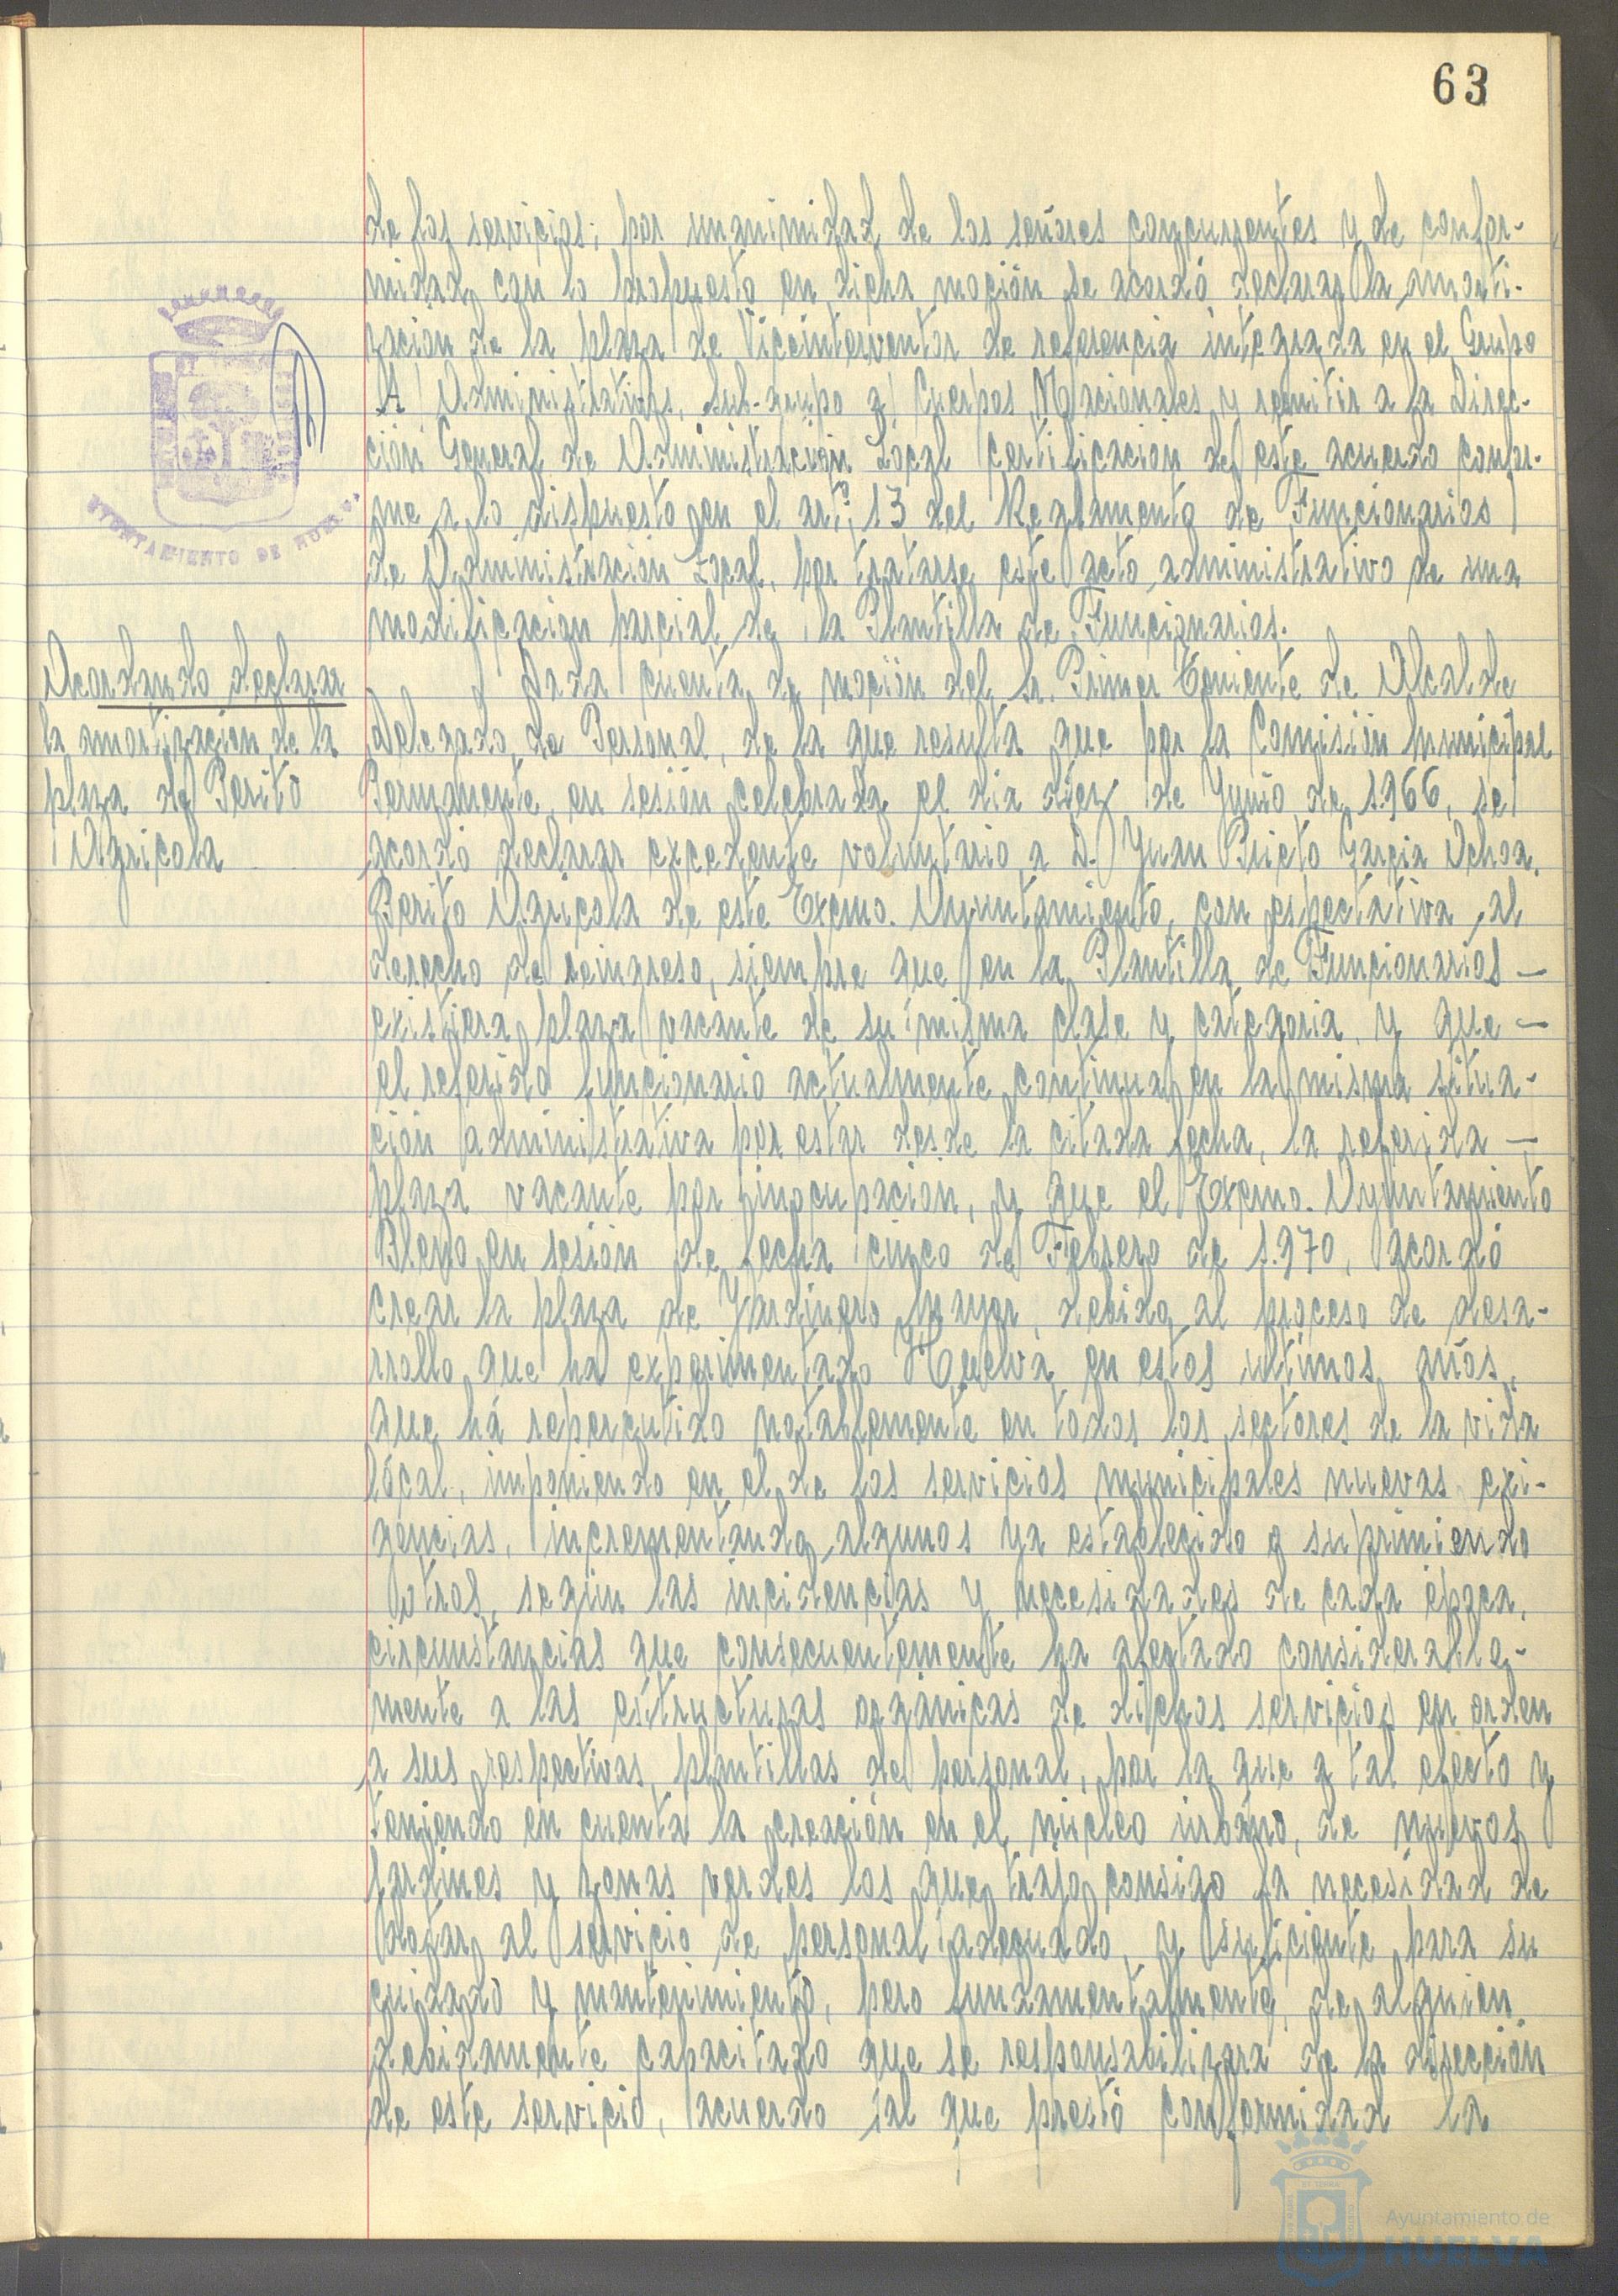 63
de los servicios; por unanimidad de los señores concurrentes y de confor-
midad con lo propuesto en dicha moción se acordó declarar la amorti-
zación de la plaza de Viceinterventor de referencia integrada en el Grupo
A) Administrativos, sub-grupo a) Cuerpos Nacionales y remitir a la Direc-
ción General de Administración Local certificación de este acuerdo confor-
me a lo dispuesto en el artº. 13 del Reglamento de Funcionarios
de Administración Local, por tratarse este acto administrativo de una
modificación parcial de la Plantilla de Funcionarios.
AYUNTAMIENTO DE HUELVA
Acordando declarar
la amortización de la
plaza de Perito
Agricola
Dada cuenta de moción del Sr. Primer Teniente de Alcalde
Delegado de Personal, de la que resulta que por la Comisión Municipal
Permanente en sesión celebrada el dia diez de Junio de 1.966, se
acordó declarar excedente voluntario a D. Juan Prieto Garcia Ochoa,
Perito Agricola de este Excmo. Ayuntamiento, con espectativa al
derecho de reingreso, siempre que en la Plantilla de Funcionarios -
existiera plaza vacante de su misma clase y categoria, y que -
el referido funcionario actualmente continua en la misma situa-
ción administrativa por estar desde la citada fecha, la referida -
plaza vacante por inocupación, y que el Excmo. Ayuntamiento
Pleno en sesión de fecha cinco de Febrero de 1.970, acordó
crear la plaza de Jardinero Mayor, debido al proceso de desa-
rrollo que ha experimentado Huelva en estos ultimos años,
que há repercutido notablemente en todos los sectores de la vida
local, imponiendo en el de los servicios municipales nuevas exi-
gencias, incrementando algunos ya establecido o suprimiendo
otros, según las incidencias y necesidades de cada época,
circunstancias que consecuentemente ha afectado considerable-
mente a las estructuras orgánicas de dichos servicios en orden
a sus respectivas plantillas de personal, por la que a tal efecto y
teniendo en cuenta la creación en el nucleo urbano, de nuevos
jardines y zonas verdes los que trajo consigo la necesidad de
dotar al servicio de personal adecuado, y suficiente para su
cuidado y mantenimiento, pero fundamentalmente de alguien
debidamente capacitado que se responsabilizara de la dirección
de este servicio, acuerdo al que prestó conformidad la
Ayuntamiento de
HUELVA